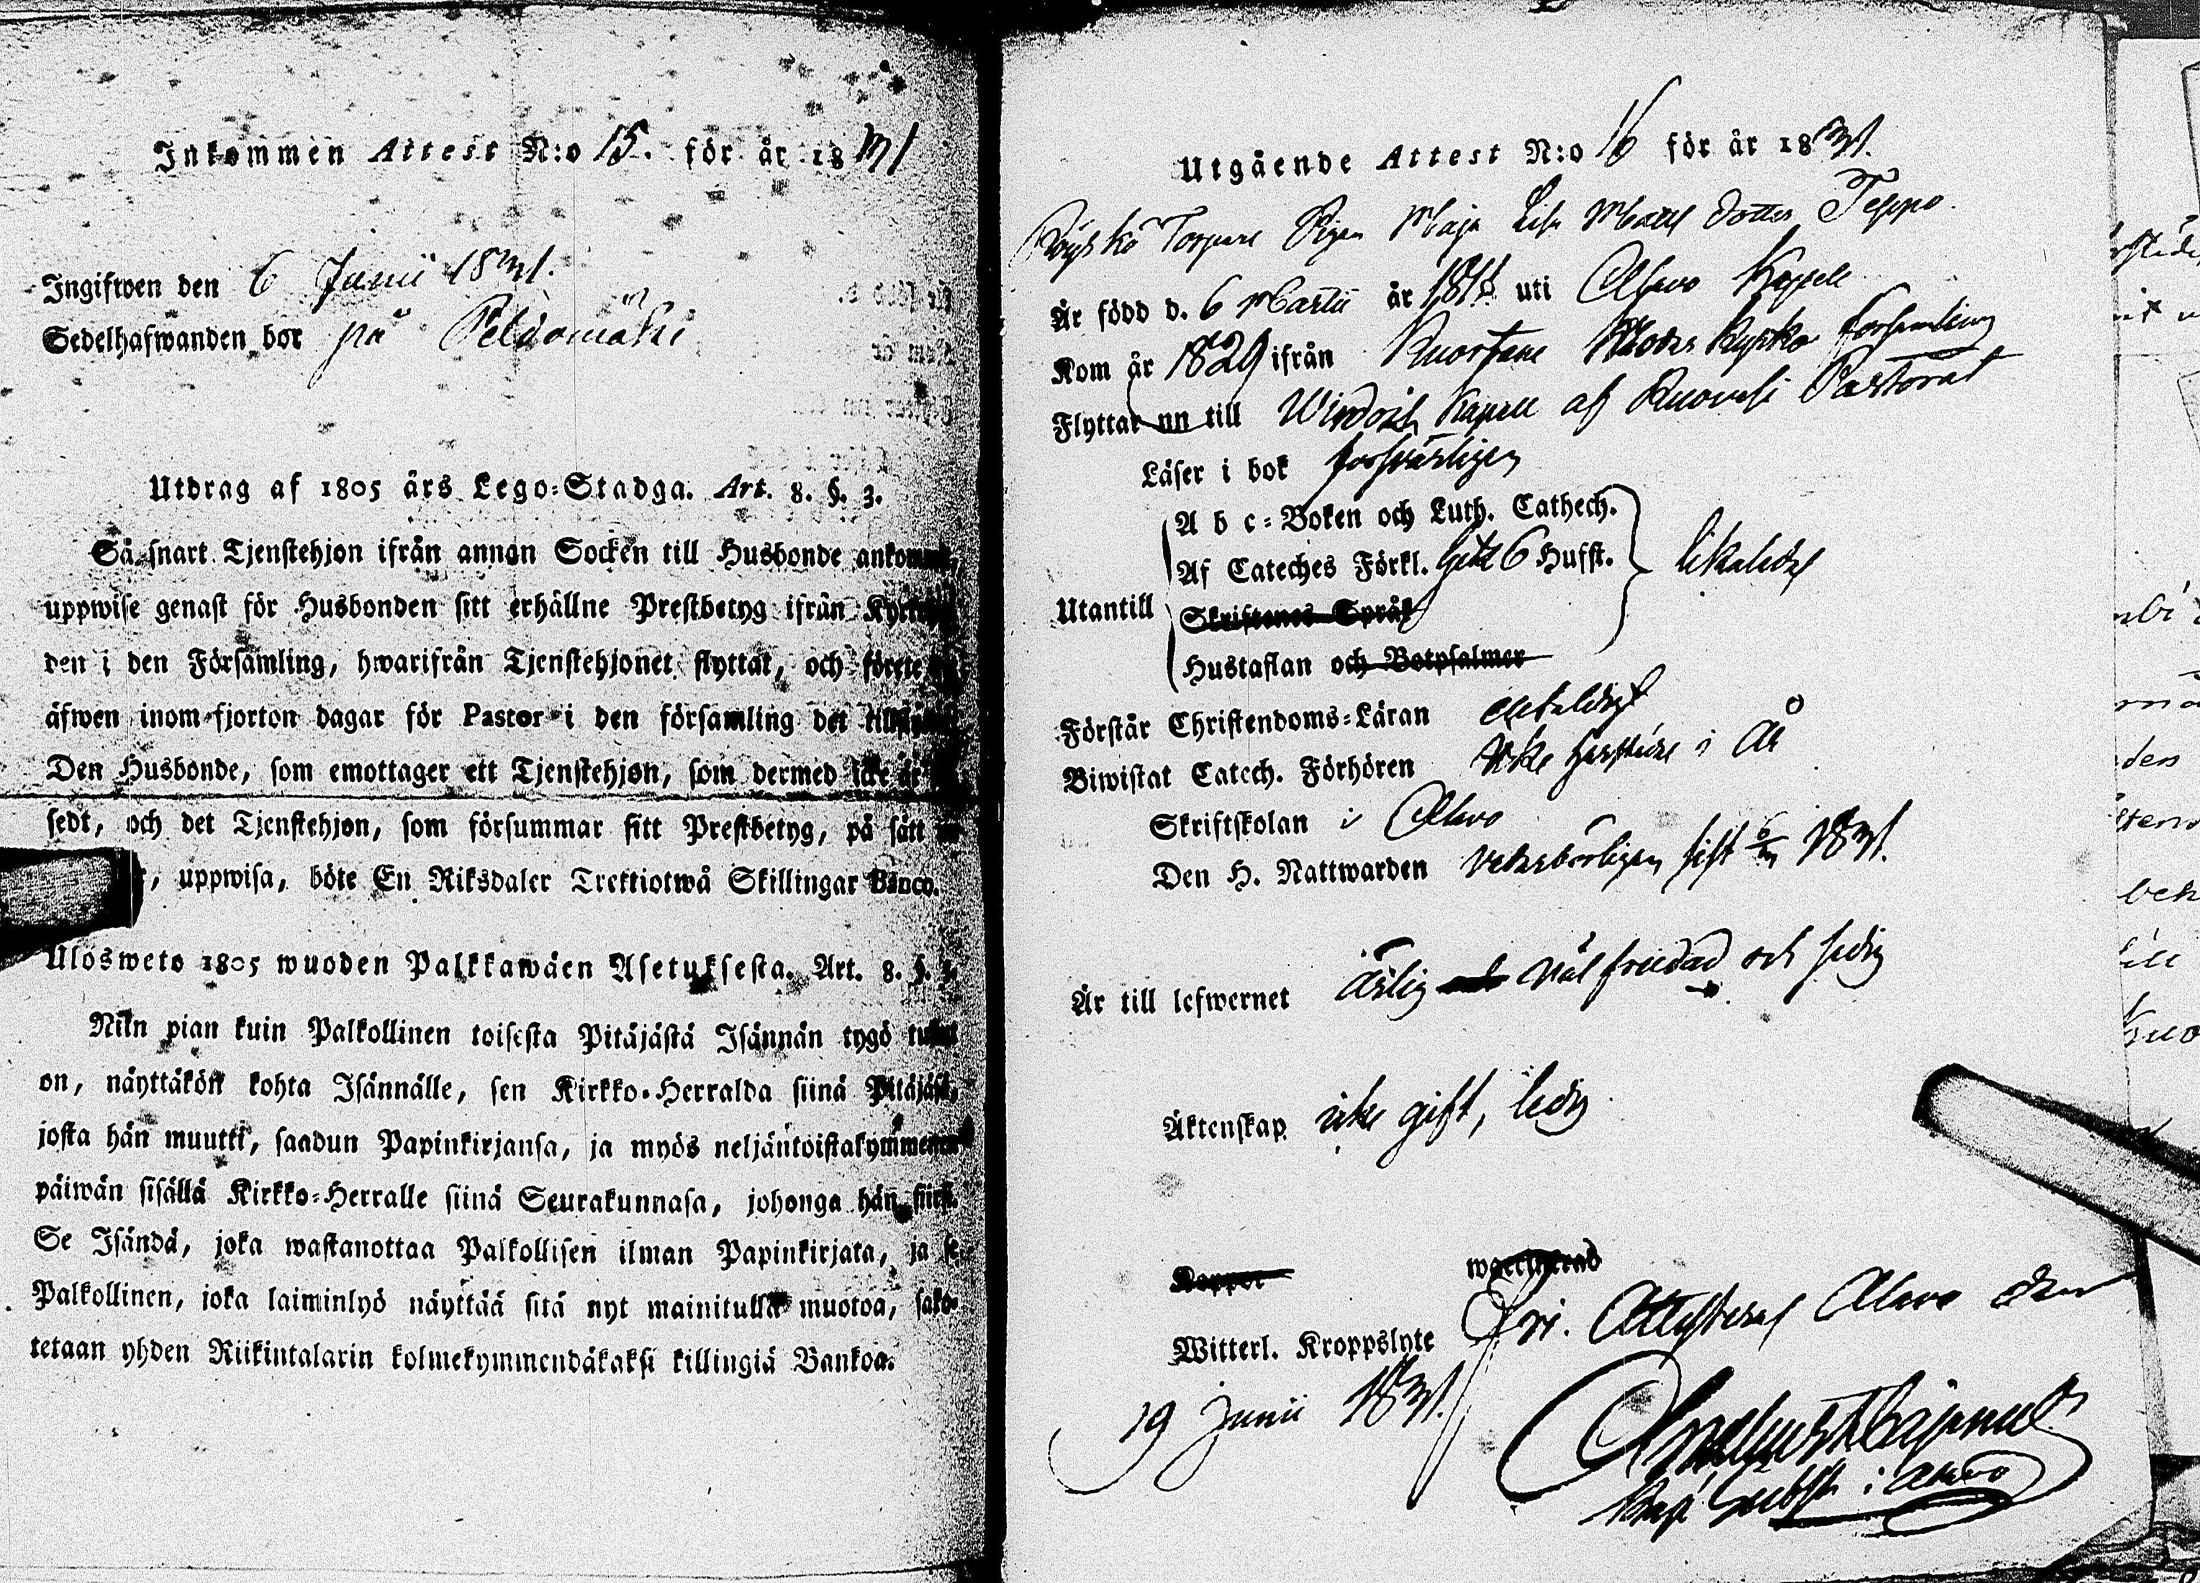 Inkommen Attest N:o 15. för år 1831
Ingifwen den 6 Junii 1831.
Sedelhafwanden bor på Peldomäki
Utdrag af 1805 års Lego-Stadga. Art. 8. §. 3.
Så snart Tjenstehjon ifrån annan Socken till Husbonde
uppwise genast för Husbonden sitt erhållne Prestbetyg ifrån
den i den Församling, hwarifrån Tjenstehjonet flyttat, och förete
äfwen inom fjorton dagar för Pastor i den församling det
Den Husbonde, som emottager ett Tjenstehjon, som dermed icke är
sedt, och det Tjenstehjon, som försummar sitt Prestbetyg, på sätt
uppwisa, böte En Riksdaler Trettiotwå Skillingar Banco.
Ulosweto 1805 wuoden Palkkawäen Asetuksesta. Art. 8. §. 3.
Niin pian kuin Palkollinen toisesta Pitäjästä Isännän tygö
on, näyttäkön kohta Isännälle, sen Kirkko-Herralda siinä
josta hän muutti, saadun Papinkirjansa, ja myös neljäntoistakymmenen
päiwän sisällä Kirkko-Herralle siinä Seurakunnasa, johonga hän
Se Isändä, joka wastanottaa Palkollisen ilman Papinkirjata, ja se
Palkollinen, joka laiminlyö näyttää sitä nyt mainitulla muotoa, sako-
tetaan yhden Riikintalarin kolmekymmendäkaksi killingiä Bankoa.
Utgående Attest N:o 16 för år 1831.
Torpare Pigan Maja Lisa Matts dotter Teppo.
Är född d. 6 Martii år uti Alavo Kapell
Kom år 1829 ifrån Kuortane Moder Kyrko församling
Flyttar nu till Wirdois Kapell af Ruovesi Pastorat
Läser i bok försvarligen
A b c-Boken och Luth. Cathech.
Af Cateches Förkl. 6 Hufst. likaledes
Utantill Skriftenes Språk
Hustaflan och Botpsalmer
Förstår Christendoms-Läran
Biwistat Catech. Förhören icke i År
Skriftskolan i Alavo
Den H. Nattwarden vederbörligen sist 1831.
Är till lefwernet ärlig väl fredad och sedig
Äktenskap icke gift, ledig
Koppor waccinerad
Witterl. Kroppslyte fri. Attesteras Alavo den
19 Junii 1831.
Kap. Subst. i Alavo